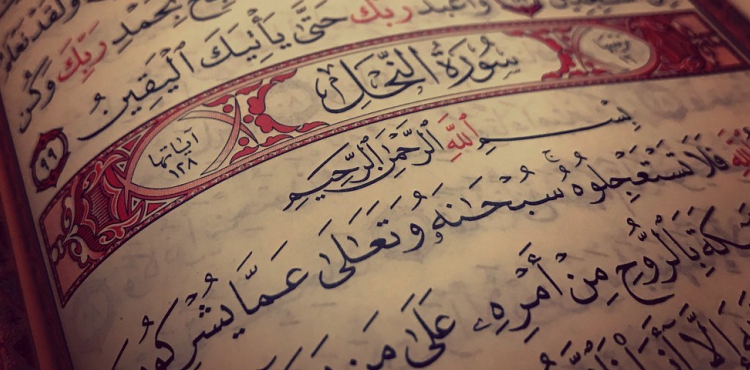 وَلَقَدْ نَعْلَمُ
بِحَمْدِ رَبِّكَ وَكُن
وَٱعْبُدْ رَبَّكَ حَتَّىٰ يَأْتِيَكَ ٱلْيَقِينُ ٩٩
سُورَةُ النَّحْلِ
آياتها ١٢٨
بِسْمِ ٱللَّهِ ٱلرَّحْمَٰنِ ٱلرَّحِيمِ
ٱللَّهِ فَلَا تَسْتَعْجِلُوهُ ۚ سُبْحَٰنَهُۥ وَتَعَٰلَىٰ عَمَّا يُشْرِكُونَ
بِٱلرُّوحِ مِنْ أَمْرِهِۦ عَلَىٰ مَن
إِلَّآ أَنَا۠